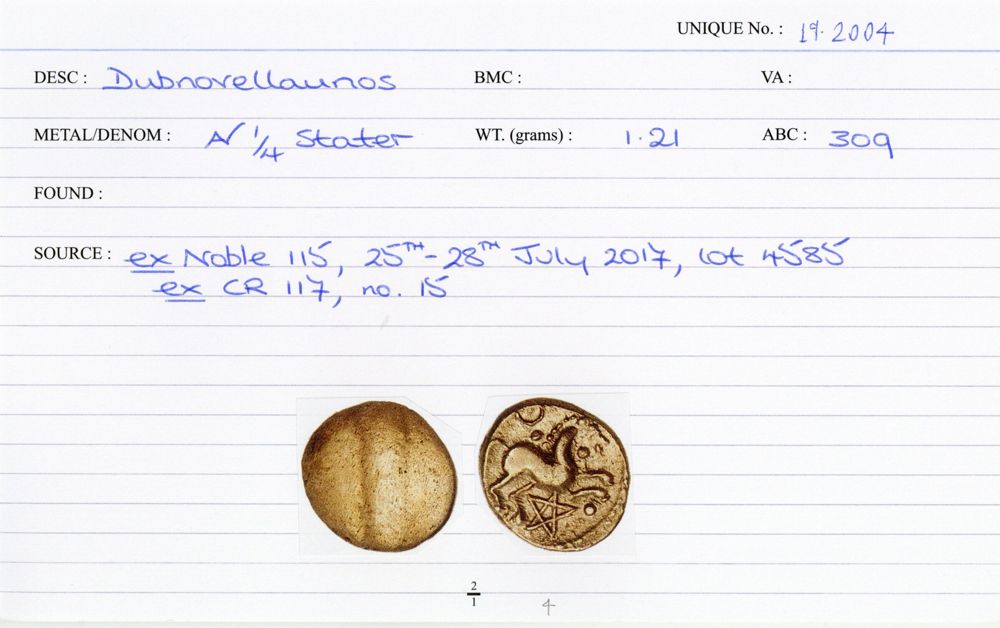 UNIQUE No. : 19.2004
DESC : Dubnovellaunos BMC : VA :
METAL/DENOM : AV 1/4 Stater WT. (grams) : 1.21 ABC : 309
FOUND :
SOURCE : ex Noble 115, 25TH-28TH July 2017, lot 4585
ex CR 117, no. 15
2/1
4